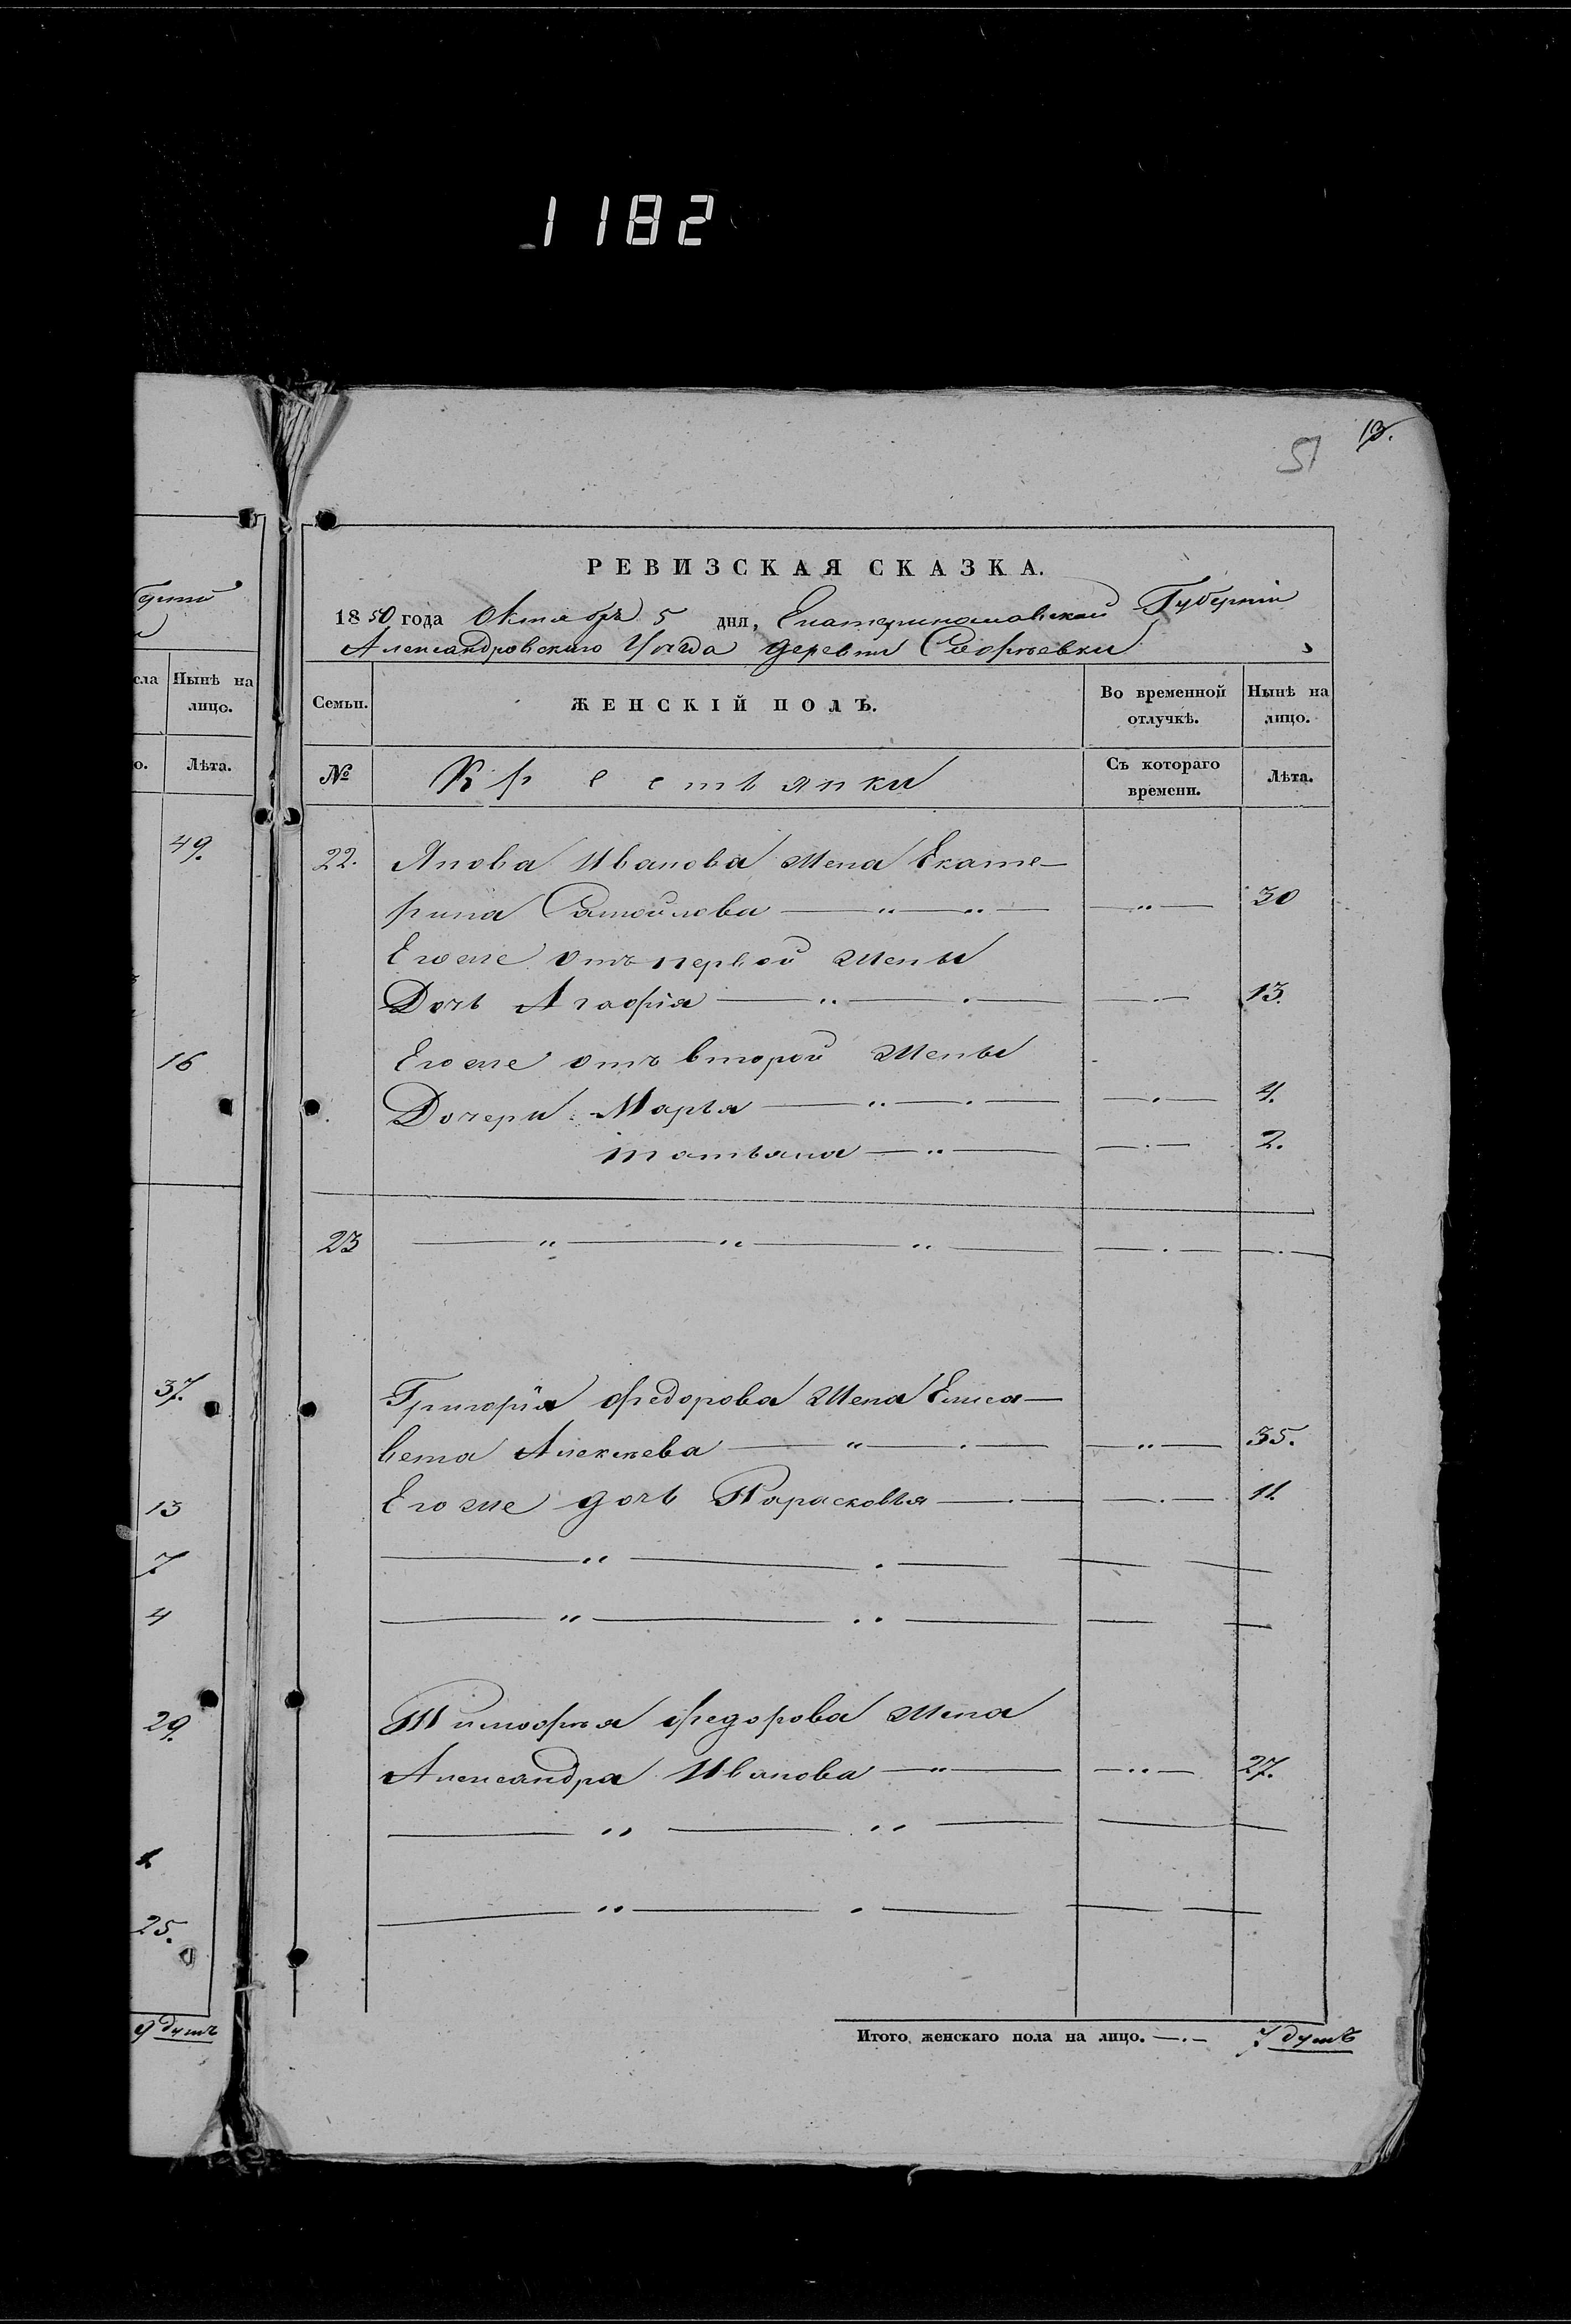 1182
51
13.
РЕВИЗСКАЯ СКАЗКА.
1850 года Октября 5 дня, Екатеринославской Губерніи
Александровскаго Уѣзда деревни Софіевки
сла
Нынѣ на лицо.
Семьи.
ЖЕНСКІЙ ПОЛЪ.
Во временной отлучкѣ.
Нынѣ на лицо.
о.
Лѣта.
№
Крестьянки
Съ котораго времени.
Лѣта.
49.
22. Якова Иванова жена Екате-
рина Самойлова — „ — „ — — „ — 30
Егоже отъ первой жены
Дочь Агафія — „ — . — — . — 13.
16
Егоже отъ второй жены
Дочери Марья — „ — . — — . — 4.
Татьяна — „ — — . — 2.
23 — „ — „ — „ — — . — — . —
37.
Григорія Федорова жена Елиса-
вета Алексѣева — „ — . — — „ — 35.
13
Егоже дочь Парасковья — . — — . — 11.
7
— „ — . — — —
4
— „ — „ — — —
29.
Тимофѣя Федорова жена
Александра Иванова — „ — — „ — 27.
— „ — „ — — —
25.
— „ — . — — —
9 душъ
Итого женскаго пола на лицо. — . — 7 душъ